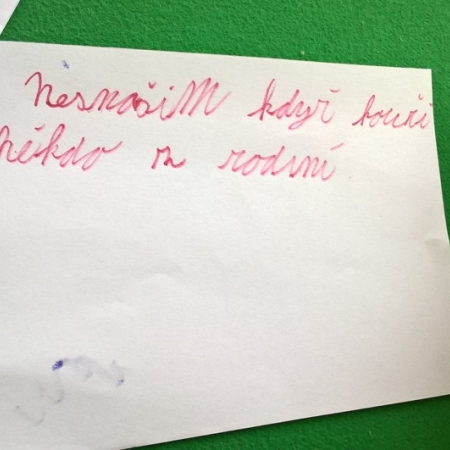 Nesnašim když kouří
někdo z rodiní